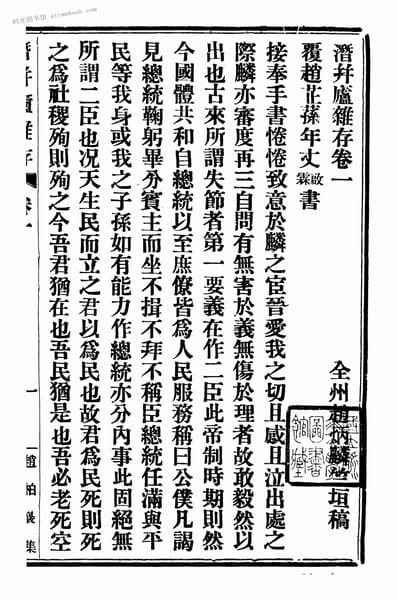 时光图书馆 - atimebook.com
潛幷廬雜存卷一
全州趙炳麟垣稿
覆趙芷蓀年丈啟霖書
接奉手書惓惓致意於麟之宦晉愛我之切且感且泣出處之
際麟亦審度再三自問有無害於義無傷於理者故敢毅然以
出也古來所謂失節者第一要義在作二臣此帝制時期則然
今國體共和自總統以至庶僚皆為人民服務稱曰公僕凡謁
見總統鞠躬畢分賓主而坐不揖不拜不稱臣總統任滿與平
民等我身或我之子孫如有能力作總統亦分內事此固絕無
所謂二臣也况天生民而立之君以為民也故君為民死則死
之為社稷殉則殉之今吾君猶在也吾民猶是也吾必老死空
潛幷廬雜存
卷一
一
趙柏巖集